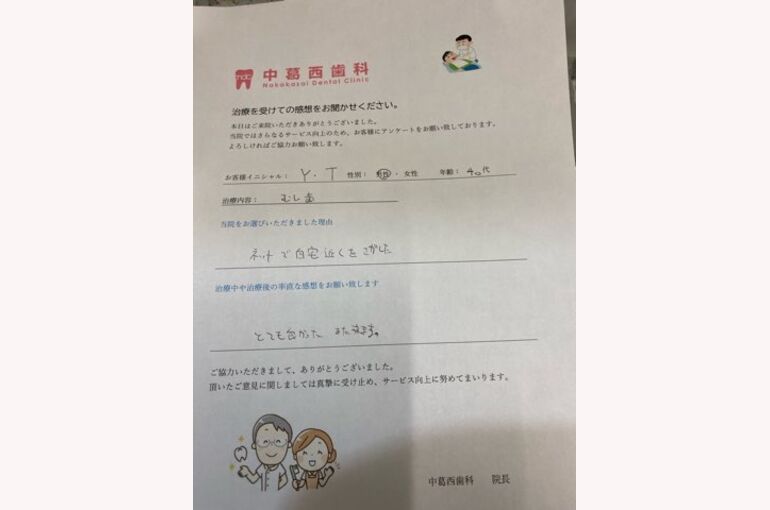 中葛西歯科
Nakakasai Dental Clinic
治療を受けての感想をお聞かせください。
本日はご来院いただきありがとうございました。
当院ではさらなるサービス向上のため、お客様にアンケートをお願い致しております。
よろしければご協力お願い致します。
お客様イニシャル： Y・T 性別： 男性・女性 年齢： 40代
治療内容： むし歯
当院をお選びいただきました理由
ネットで自宅近くをさがした
治療中や治療後の率直な感想をお願い致します
とても良かった また来ます。
ご協力いただきまして、ありがとうございました。
頂いたご意見に関しましては真摯に受け止め、サービス向上に努めてまいります。
中葛西歯科 院長